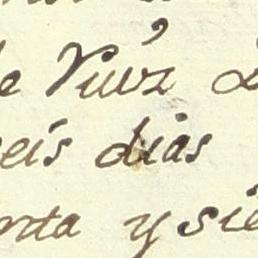 e Ruiz
eis dias
nta y sie